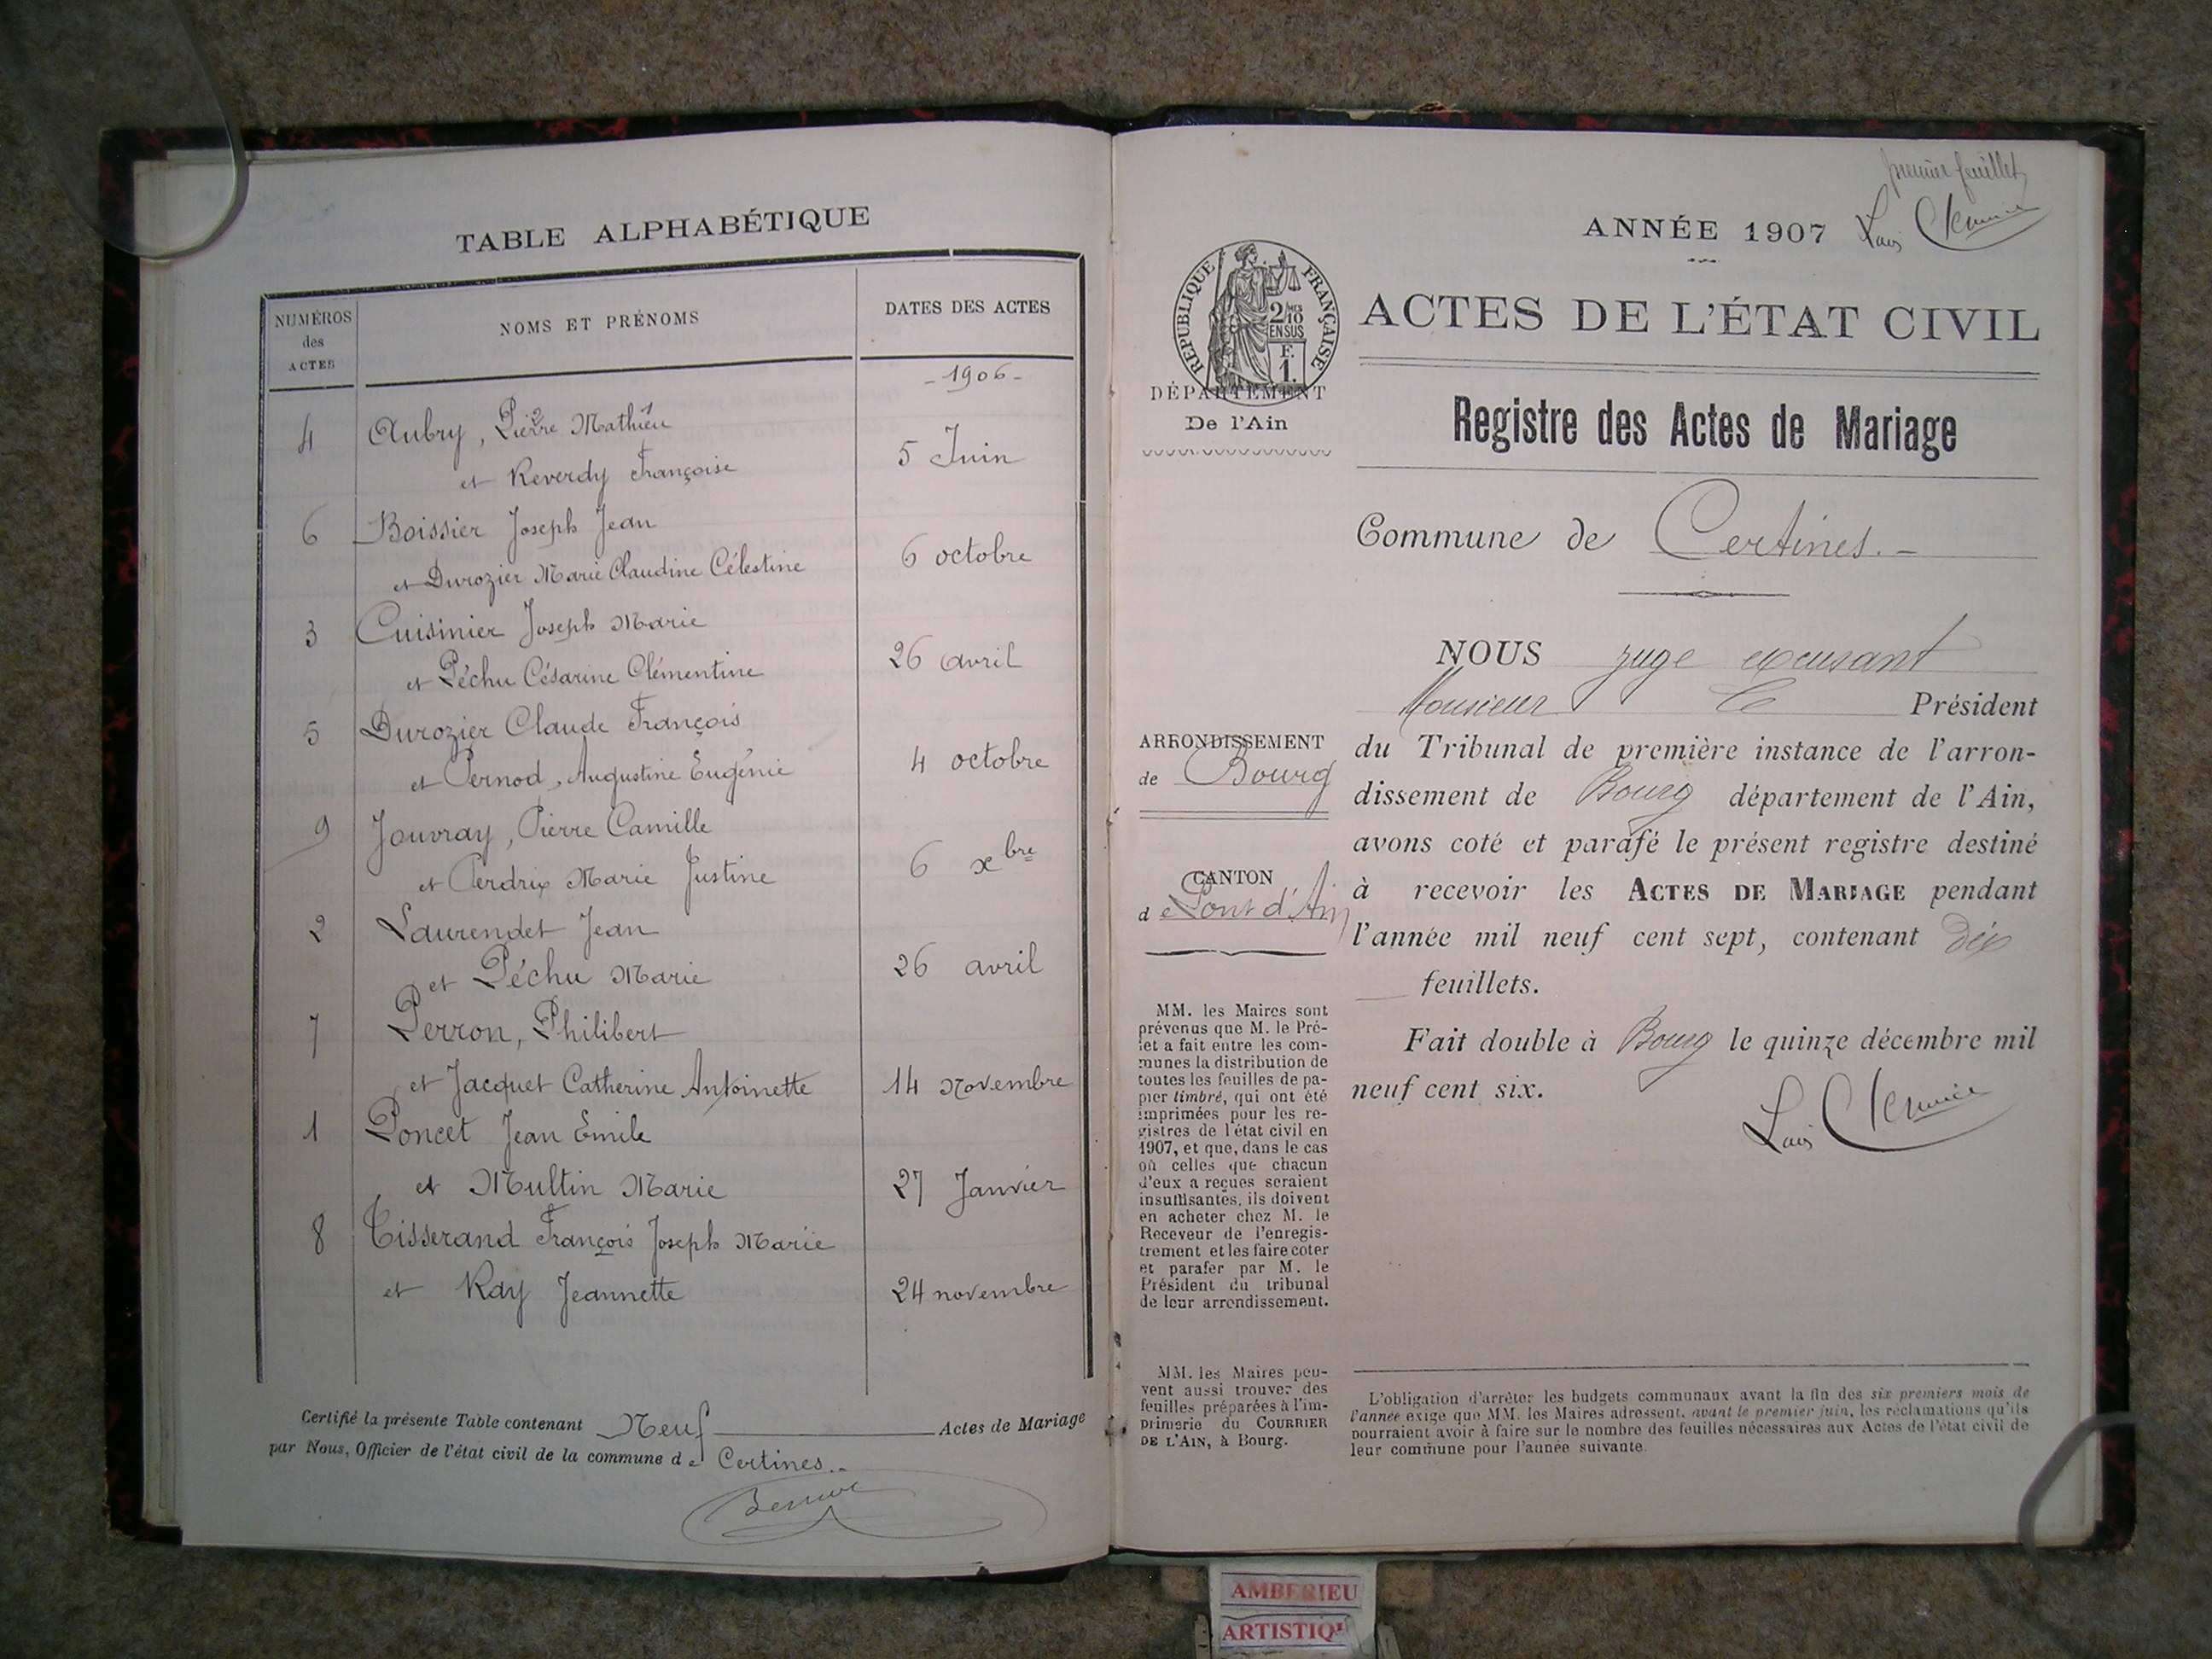 TABLE ALPHABÉTIQUE
NUMÉROS
des
ACTES
NOMS ET PRÉNOMS
DATES DES ACTES
- 1906 -
4 Aubry, Pierre Mathieu
et Reverdy Françoise 5 Juin
6 Boissier Joseph Jean
et Durozier Marie Claudine Célestine 6 octobre
3 Cuisinier Joseph Marie
et Péchu Césarine Clémentine 26 avril
5 Durozier Claude François
et Pernod, Augustine Eugénie 4 octobre
9 Jouvray, Pierre Camille
et Perdrix Marie Justine 6 xbre
2 Laurendet Jean
et Péchu Marie 26 avril
7 Perron, Philibert
et Jacquet Catherine Antoinette 14 Novembre
1 Poncet Jean Emile
et Multin Marie 27 Janvier
8 Tisserand François Joseph Marie
et Ray Jeannette 24 novembre
Certifié la présente Table contenant Neuf Actes de Mariage
par Nous, Officier de l'état civil de la commune de Certines.-
premier feuillet
ANNÉE 1907
RÉPUBLIQUE FRANÇAISE
2/10
EN SUS
F.
1.
DÉPARTEMENT
De l'Ain
ACTES DE L'ÉTAT CIVIL
Registre des Actes de Mariage
Commune de Certines.-
NOUS juge excusant
Monsieur le Président
du Tribunal de première instance de l'arron-
dissement de Bourg département de l'Ain,
avons coté et parafé le présent registre destiné
à recevoir les ACTES DE MARIAGE pendant
l'année mil neuf cent sept, contenant dix
feuillets.
Fait double à Bourg le quinze décembre mil
neuf cent six.
ARRONDISSEMENT
de Bourg
CANTON
de Pont d'Ain
MM. les Maires sont
prévenus que M. le Pré-
fet a fait entre les com-
munes la distribution de
toutes les feuilles de pa-
pier timbré, qui ont été
imprimées pour les re-
gistres de l'état civil en
1907, et que, dans le cas
où celles que chacun
d'eux a reçues seraient
insuffisantes, ils doivent
en acheter chez M. le
Receveur de l'enregis-
trement et les faire coter
et parafer par M. le
Président du tribunal
de leur arrondissement.
MM. les Maires peu-
vent aussi trouver des
feuilles préparées à l'im-
primerie du COURRIER
DE L'AIN, à Bourg.
L'obligation d'arrêter les budgets communaux avant la fin des six premiers mois de
l'année exige que MM. les Maires adressent, avant le premier juin, les réclamations qu'ils
pourraient avoir à faire sur le nombre des feuilles nécessaires aux Actes de l'état civil de
leur commune pour l'année suivante.
AMBERIEU
ARTISTIQ